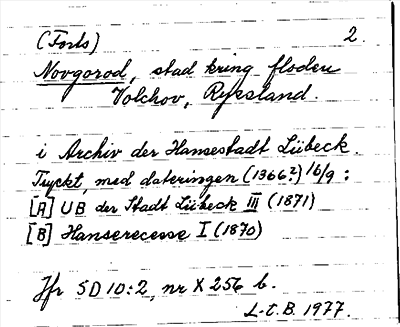 (Forts) 2.
Novgorod, stad kring floden
Volchov, Ryssland.
i Archiv der Hansestadt Lübeck.
Tryckt, med dateringen (1366?) 16/9 :
[A] UB der Stadt Lübeck III (1871)
[B] Hanserecesse I (1870)
Jfr SD 10:2, nr X 256 b.
L-t. B. 1977.